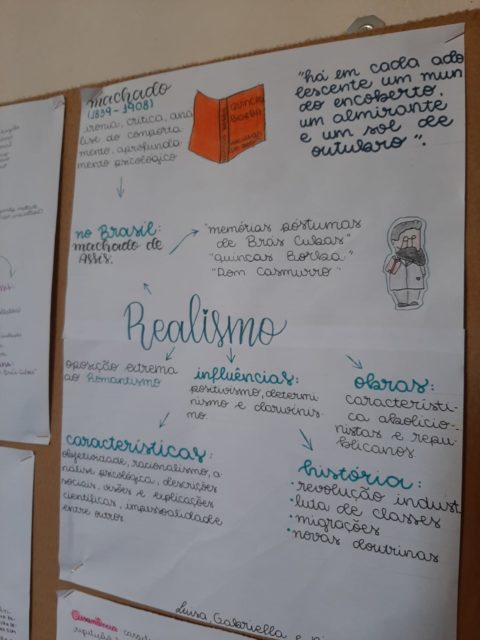 machado
(1839-1908)
ironia, crítica, aná
lise do comporta
mento, aprofunda
mento psicológico
QUINCAS
BORBA
"há em cada ado
lescente um mun
do encoberto,
um almirante
e um sol de
outubro".
no Brasil:
machado de
Assis.
"memórias póstumas
de Brás Cubas"
"quincas Borba"
"Dom Casmurro"
Realismo
oposição extrema
ao Romantismo
influências:
positivismo, determi
nismo e darwinis
mo.
obras:
característi-
ca abolicio-
nistas e repu-
blicanos
características:
objetividade, racionalismo, a-
nálise psicológica, descrições
sociais, visões e explicações
científicas, impessoalidade
entre outros
história:
• revolução indust
• luta de classes
• migrações
• novas doutrinas
Luisa, Gabriella e